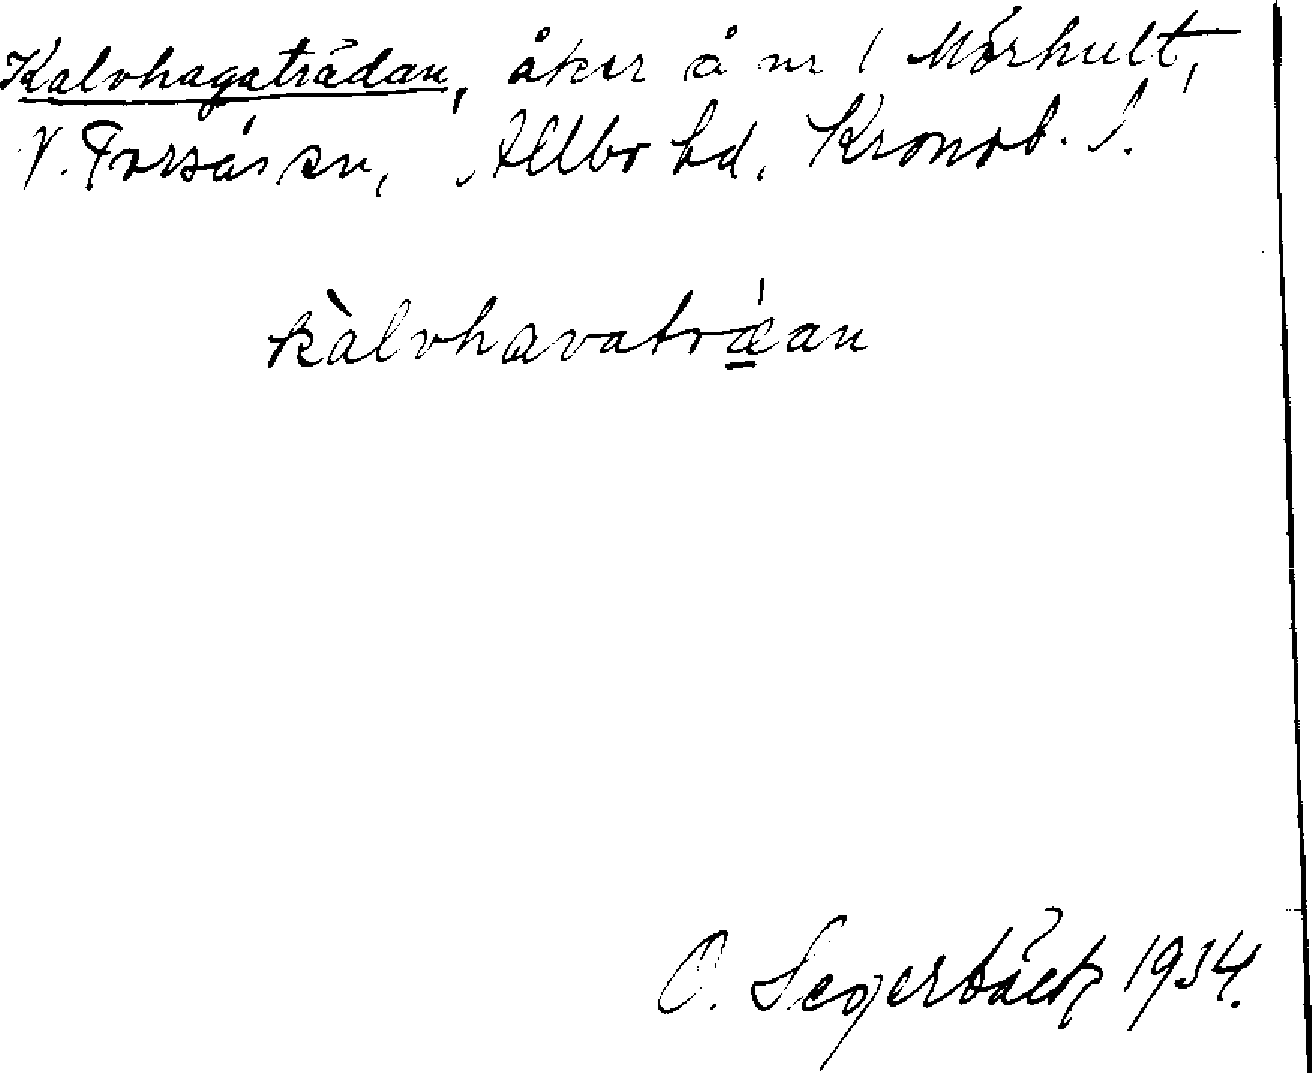 Kalvhagaträdan, åker å nr 1 Mörhult,
V. Torsås sn, Allbo hd. Kronob. l.
kàlvhavatrǽan
O. Segerbäck 1934.